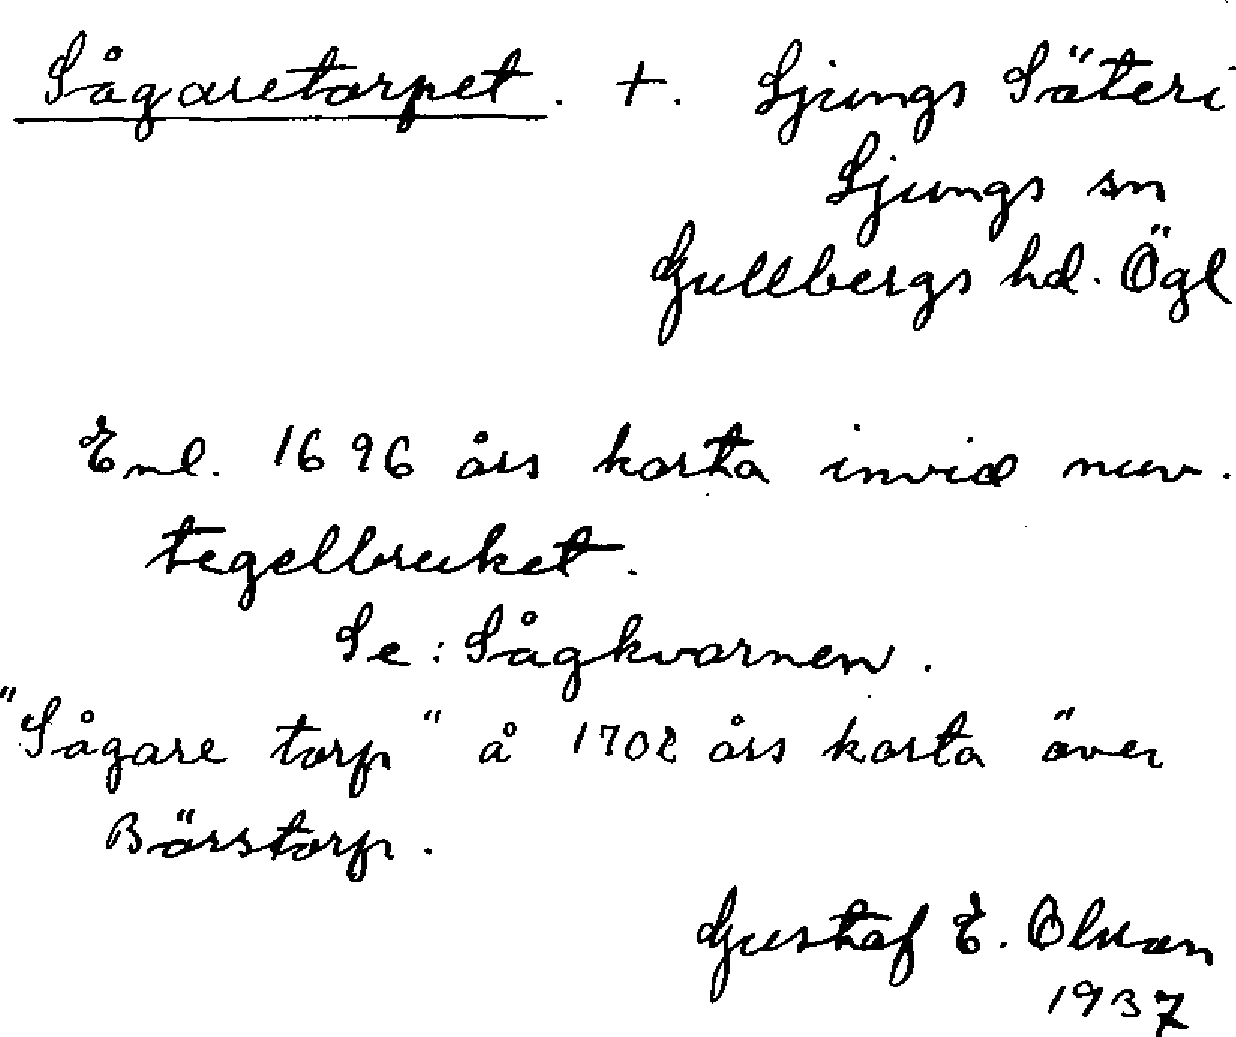 Sågaretorpet. +. Ljungs Säteri
Ljungs sn
Gullbergs hd. Ögl
Enl. 1696 års karta invid nuv.
tegelbruket.
Se: Sågkvarnen.
"Sågare torp" å 1702 års karta över
Börstorp.
Gustaf E. Olsson
1937